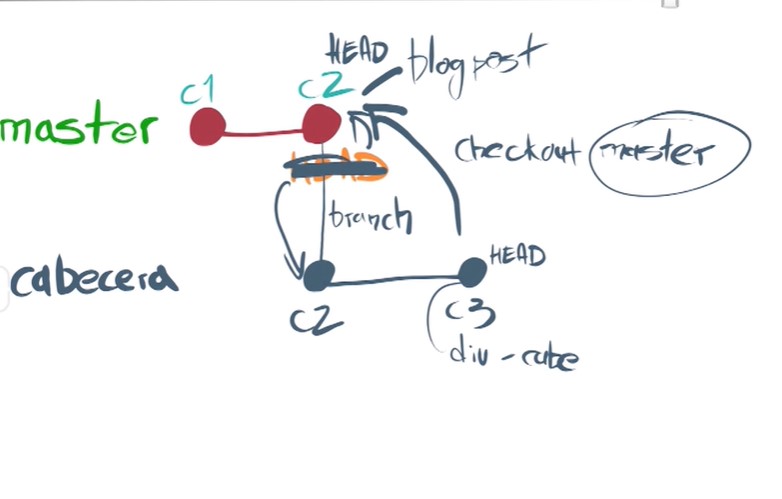 HEAD
blogpost
c1
c2
master
checkout master
HEAD
branch
cabecera
HEAD
c2
c3
div-cabe